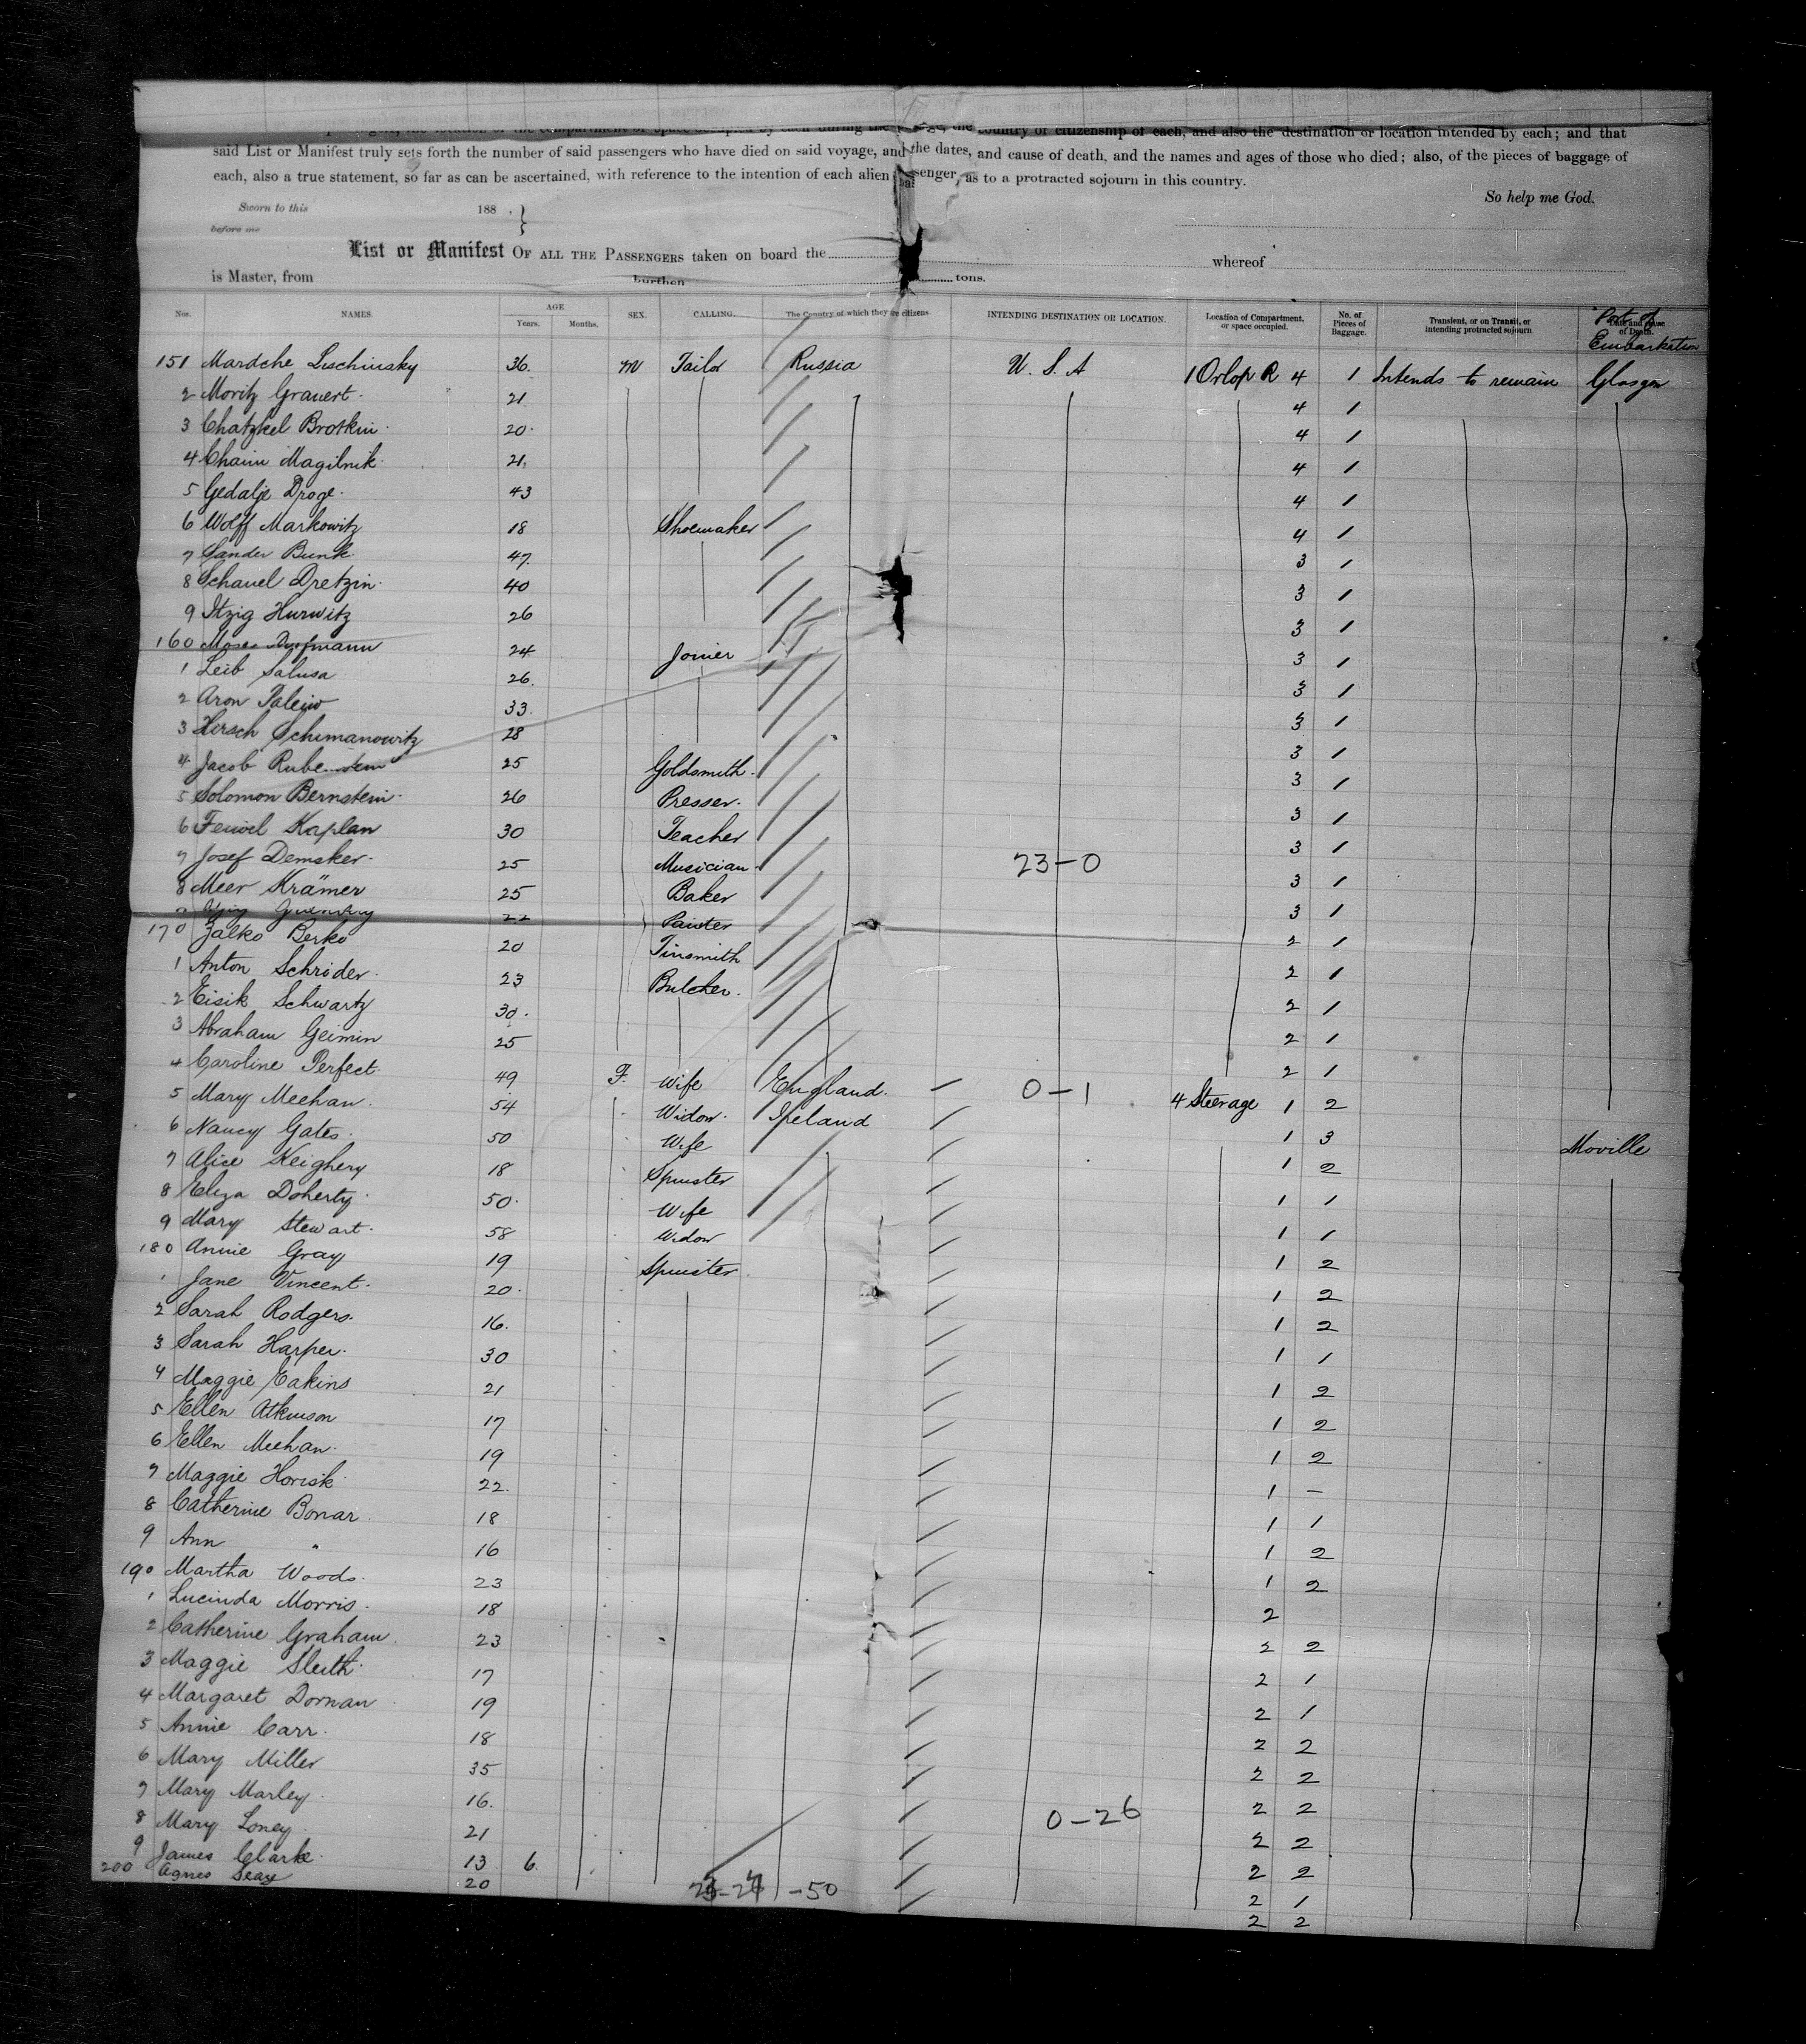 the country or citizenship of each, and also the destination or location intended by each; and that
said List or Manifest truly sets forth the number of said passengers who have died on said voyage, and the dates, and cause of death, and the names and ages of those who died; also, of the pieces of baggage of
each, also a true statement, so far as can be ascertained, with reference to the intention of each alien passenger, as to a protracted sojourn in this country.
So help me God.
Sworn to this 188 . }
before me
List or Manifest OF ALL THE PASSENGERS taken on board the whereof
is Master, from burthen tons.
Nos. NAMES. AGE Years. Months. SEX. CALLING. The Country of which they are citizens. INTENDING DESTINATION OR LOCATION. Location of Compartment, or space occupied. No. of Pieces of Baggage. Transient, or on Transit, or intending protracted sojourn Date and Cause of Death. Port of Embarkation
151 Mardche Lischinsky 36. M Tailor Russia U. S. A 1 Orlop R 4 1 Intends to remain Glasgow
2 Moritz Grauert 21 4 1
3 Chatzkel Brotkin 20 4 1
4 Chaim Magilnik 21 4 1
5 Gedalje Droge 43 4 1
6 Wolff Markowitz 18 Shoemaker 4 1
7 Sander Bunk 47 3 1
8 Schauel Dretzin 40 3 1
9 Itzig Hurwitz 26 3 1
160 Moses 24 Joiner 3 1
1 Leib Salusa 26 3 1
2 Aron 33 3 1
3 Hirsch Schimanowitz 28 3 1
4 Jacob Rubenstein 25 Goldsmith 3 1
5 Solomon Bernstein 26 Presser 3 1
6 Feiwel Kaplan 30 Teacher 3 1
7 Josef Demsker 25 Musician 23-0 3 1
8 Meer Krämer 25 Baker 3 1
22 Painter 2 1
170 Zalko Berko 20 Tinsmith 2 1
1 Anton Schröder 23 Butcher 2 1
2 Eisik Schwartz 30 2 1
3 Abraham Geimin 25 2 1
4 Caroline Perfect 49 F. Wife England 0-1 4 Steerage 1 2
5 Mary Meehan 54 Widow Ireland 1 3 Moville
6 Nancy Gates 50 Wife 1 2
7 Alice Keighery 18 Spinster 1 1
8 Eliza Doherty 50 Wife 1 1
9 Mary Stewart 58 Widow 1 2
180 Annie Gray 19 Spinster 1 2
1 Jane Vincent 20 1 2
2 Sarah Rodgers 16 1 1
3 Sarah Harper 30 1 2
4 Maggie Eakins 21 1 2
5 Ellen Atkinson 17 1 2
6 Ellen Meehan 19 1 -
7 Maggie Horisk 22 1 1
8 Catherine Bonar 18 1 2
9 Ann " 16 1 2
190 Martha Woods 23 2
1 Lucinda Morris 18 2 2
2 Catherine Graham 23 2 1
3 Maggie Sleith 17 2 1
4 Margaret Dornan 19 2 2
5 Annie Carr 18 2 2
6 Mary Miller 35 2 2
7 Mary Marley 16 0-26 2 2
8 Mary Loney 21 2 2
9 James Clark 13 6 2 1
200 Agnes 20 -50 2 2